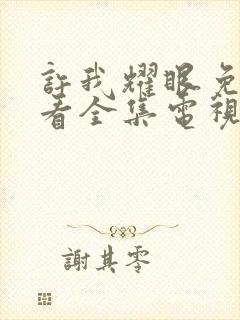 許我耀眼免
看全集電視
謝其零